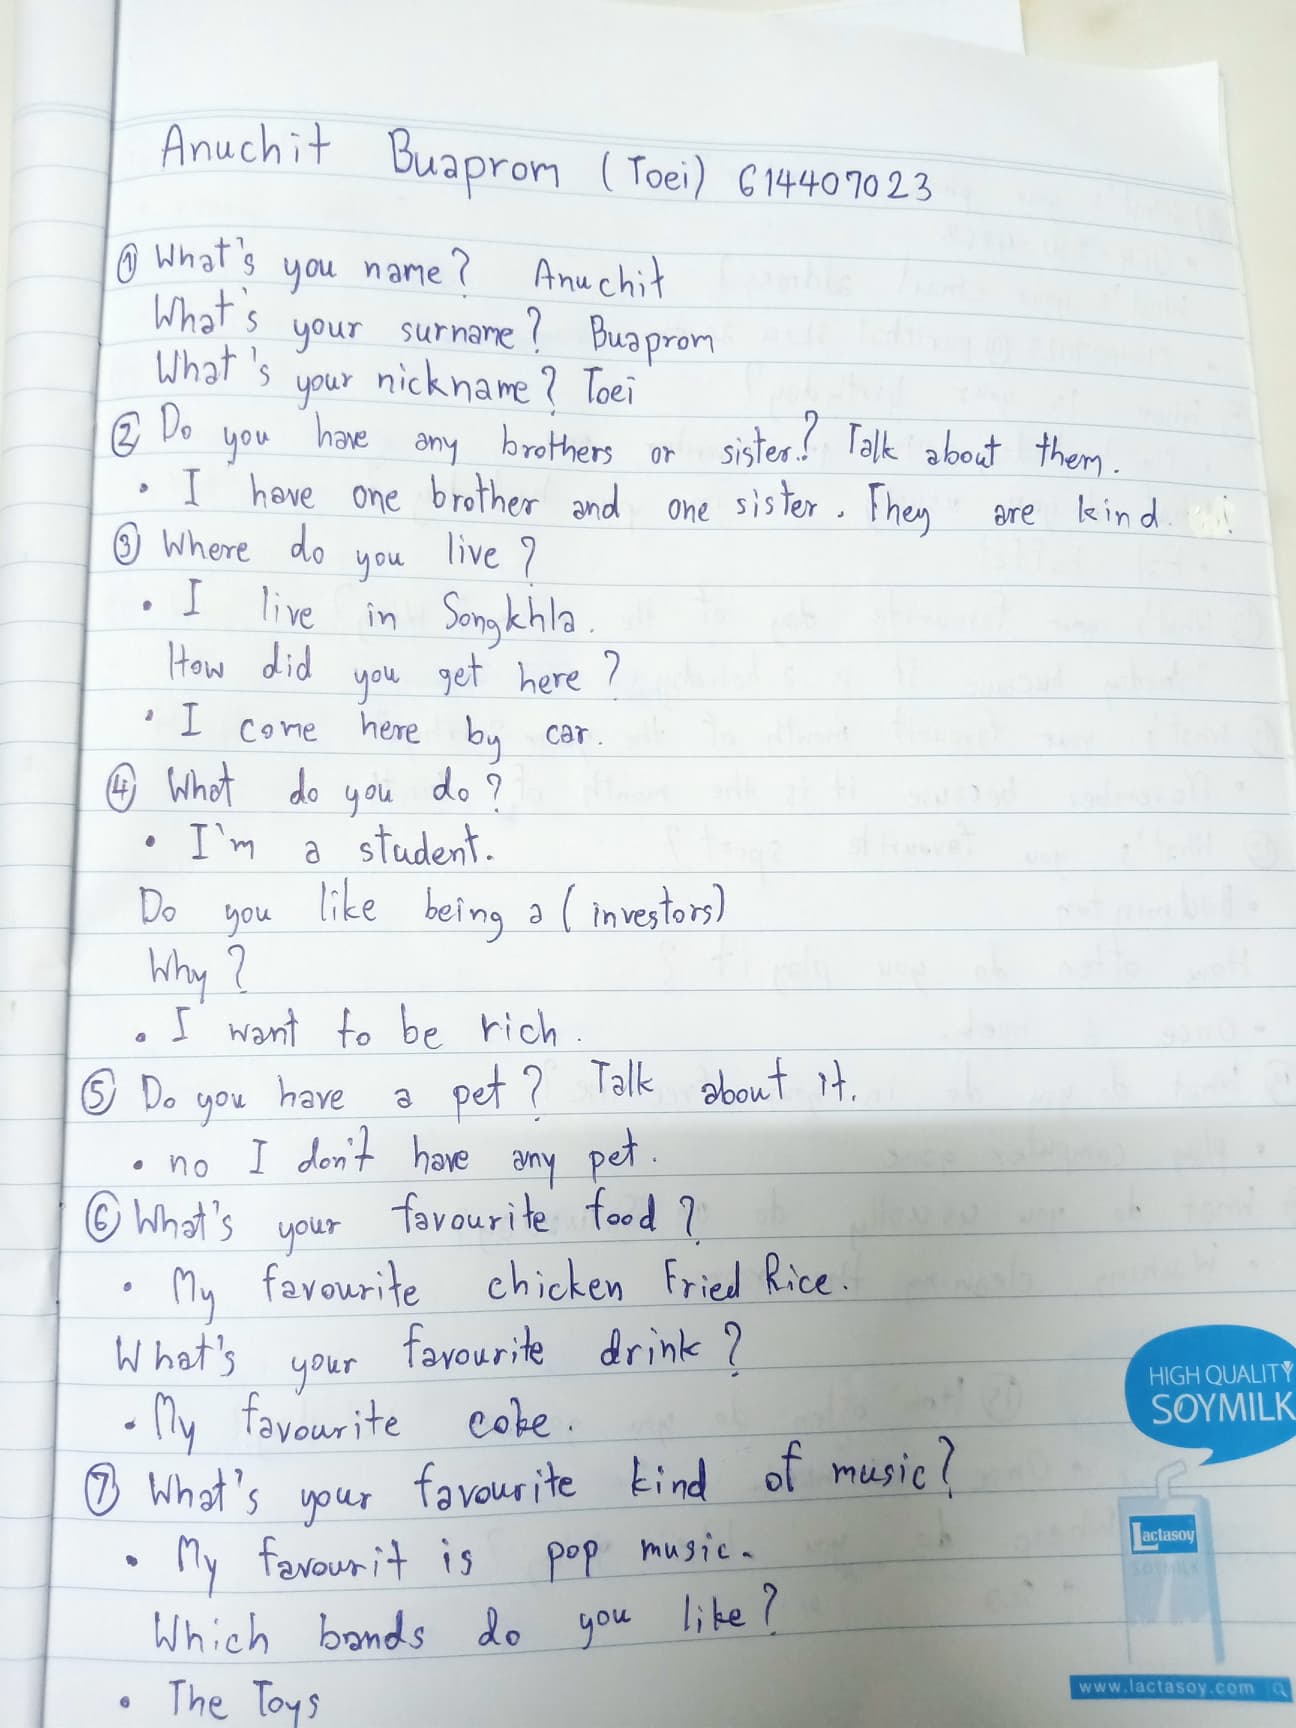 Anuchit Buaprom (Toei) 614407023
① What's you name? Anuchit
What's your surname? Buaprom
What's your nickname? Toei
② Do you have any brothers or sister? Talk about them.
• I have one brother and one sister. They are kind.
③ Where do you live?
• I live in Songkhla.
How did you get here?
• I come here by car.
④ What do you do?
• I'm a student.
Do you like being a (investors)
Why?
• I want to be rich.
⑤ Do you have a pet? Talk about it.
• no I don't have any pet.
⑥ What's your favourite food?
• My favourite chicken Fried Rice.
What's your favourite drink?
• My favourite coke.
⑦ What's your favourite kind of music?
• My favourit is pop music.
Which bands do you like?
• The Toys
HIGH QUALITY
SOYMILK
Lactasoy
SOYMILK
www.lactasoy.com